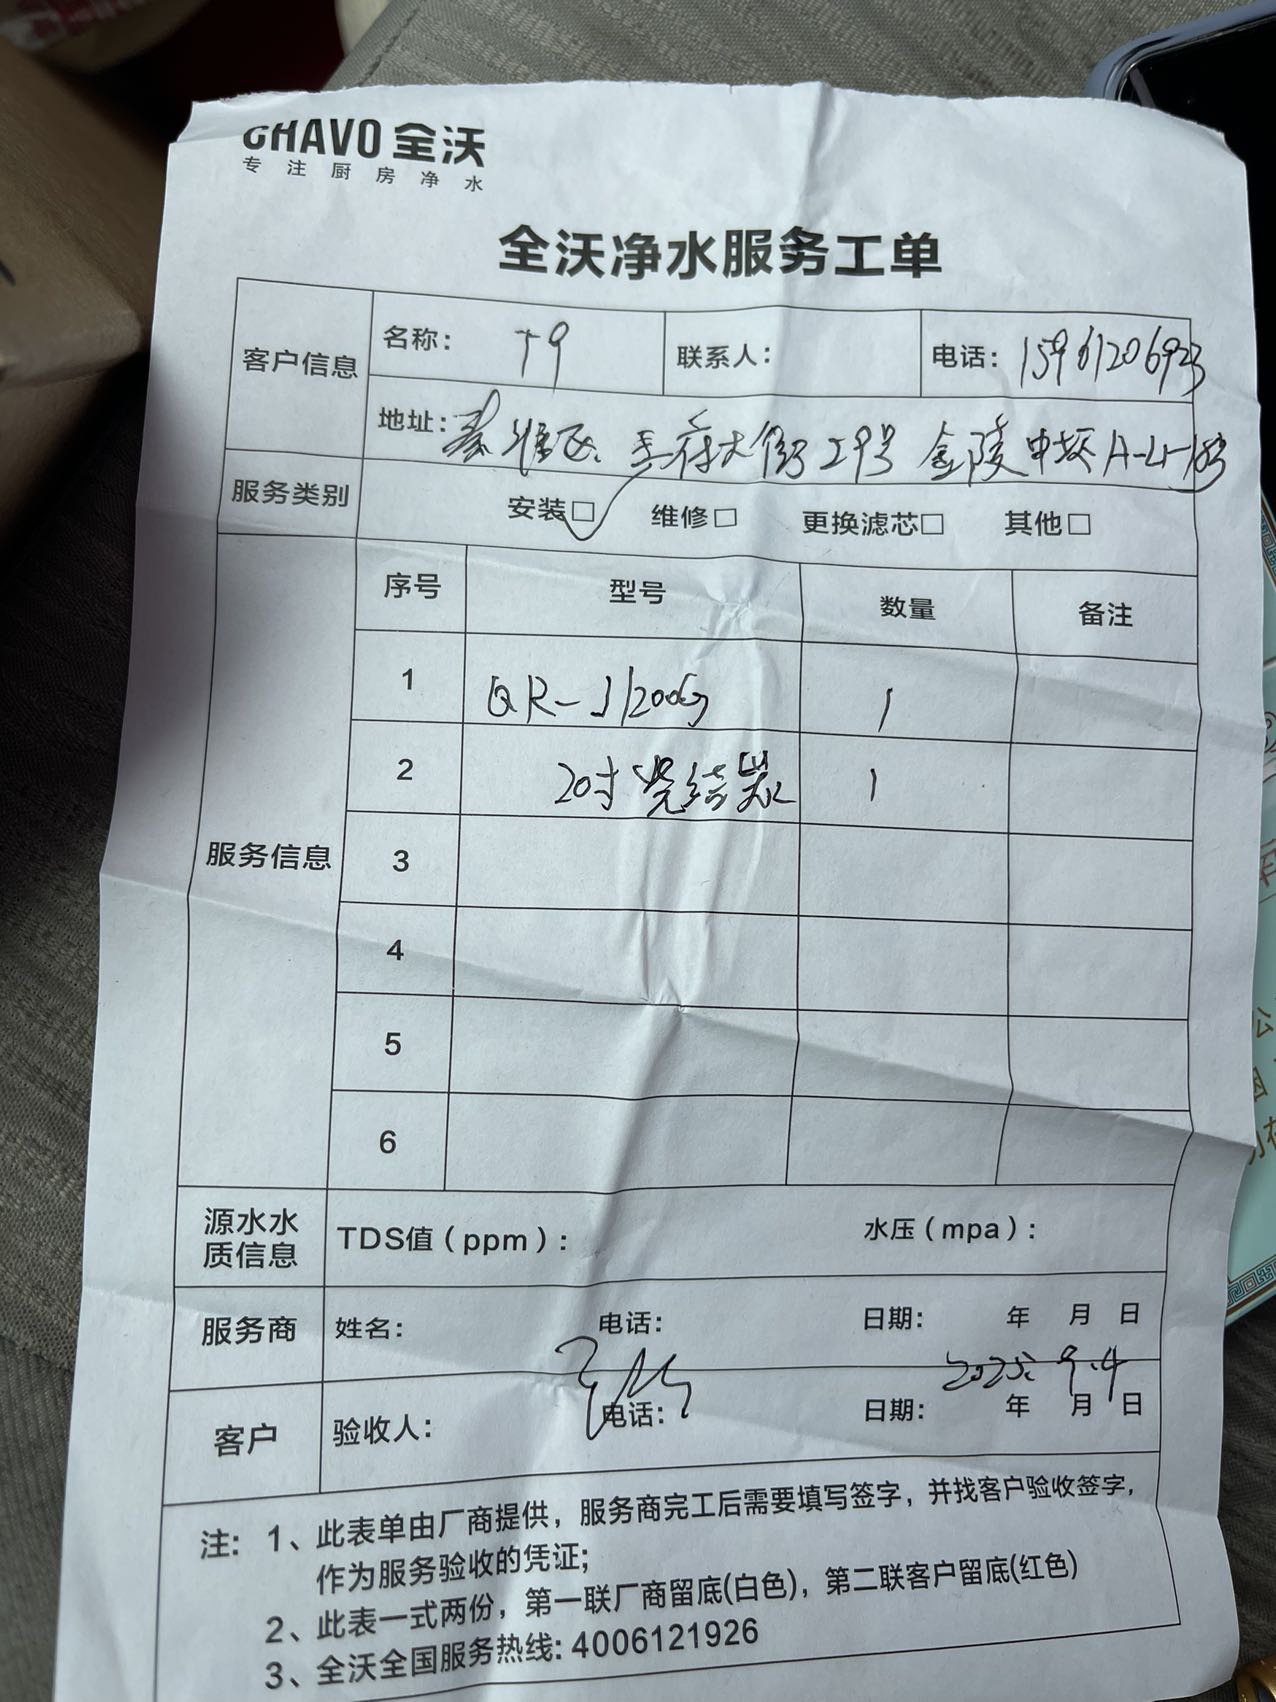 CHAVO 全沃
专注厨房净水
全沃净水服务工单
客户信息 名称: T9 联系人: 电话: 15961206923
地址: 秦淮区 王府大街29号 金陵中环 A-L1-103
服务类别 安装□ 维修□ 更换滤芯□ 其他□
服务信息 序号 型号 数量 备注
1 QR-J1200G 1
2 20寸烧结炭 1
3
4
5
6
源水水质信息 TDS值(ppm): 水压(mpa):
服务商 姓名: 电话: 日期: 年 月 日
2025.9.4
客户 验收人: 电话: 日期: 年 月 日
注: 1、此表单由厂商提供，服务商完工后需要填写签字，并找客户验收签字，
作为服务验收的凭证;
2、此表一式两份，第一联厂商留底(白色)，第二联客户留底(红色)
3、全沃全国服务热线: 4006121926